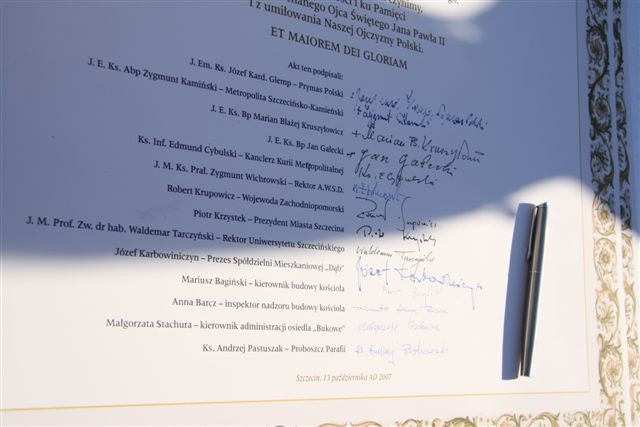 czynimy,
ści i ku Pamięci
chanego Ojca Świętego Jana Pawła II
i z umiłowania Naszej Ojczyzny Polski.
ET MAIOREM DEI GLORIAM
Akt ten podpisali:
J. Em. Ks. Józef Kard. Glemp – Prymas Polski
J. E. Ks. Abp Zygmunt Kamiński – Metropolita Szczecińsko-Kamieński
J. E. Ks. Bp Marian Błażej Kruszyłowicz + Marian B. Kruszyłowicz
J. E. Ks. Bp Jan Gałecki + Jan Gałecki
Ks. Inf. Edmund Cybulski – Kanclerz Kurii Metropolitalnej Ks. E. Cybulski
J. M. Ks. Prał. Zygmunt Wichrowski – Rektor A.W.S.D.
Robert Krupowicz – Wojewoda Zachodniopomorski
Piotr Krzystek – Prezydent Miasta Szczecina
J. M. Prof. Zw. dr hab. Waldemar Tarczyński – Rektor Uniwersytetu Szczecińskiego Waldemar Tarczyński
Józef Karbowniczyn – Prezes Spółdzielni Mieszkaniowej „Dąb” Józef Karbowniczyn
Mariusz Bagiński – kierownik budowy kościoła
Anna Barcz – inspektor nadzoru budowy kościoła
Małgorzata Stachura – kierownik administracji osiedla „Bukowe”
Ks. Andrzej Pastuszak – Proboszcz Parafii Ks Andrzej Pastuszak
Szczecin, 13 października AD 2007